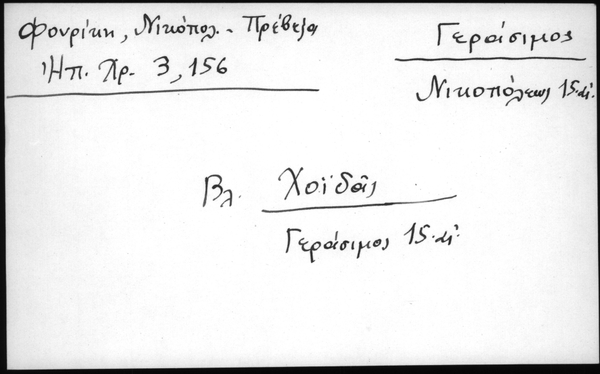 Φουρίκη, Νικόπολ. - Πρέβεζα
Ἠπ. Χρ. 3, 156
Γεράσιμος
Νικοπόλεως 15. αἰ.
Βλ. Χοϊδᾶς
Γεράσιμος 15. αἰ.